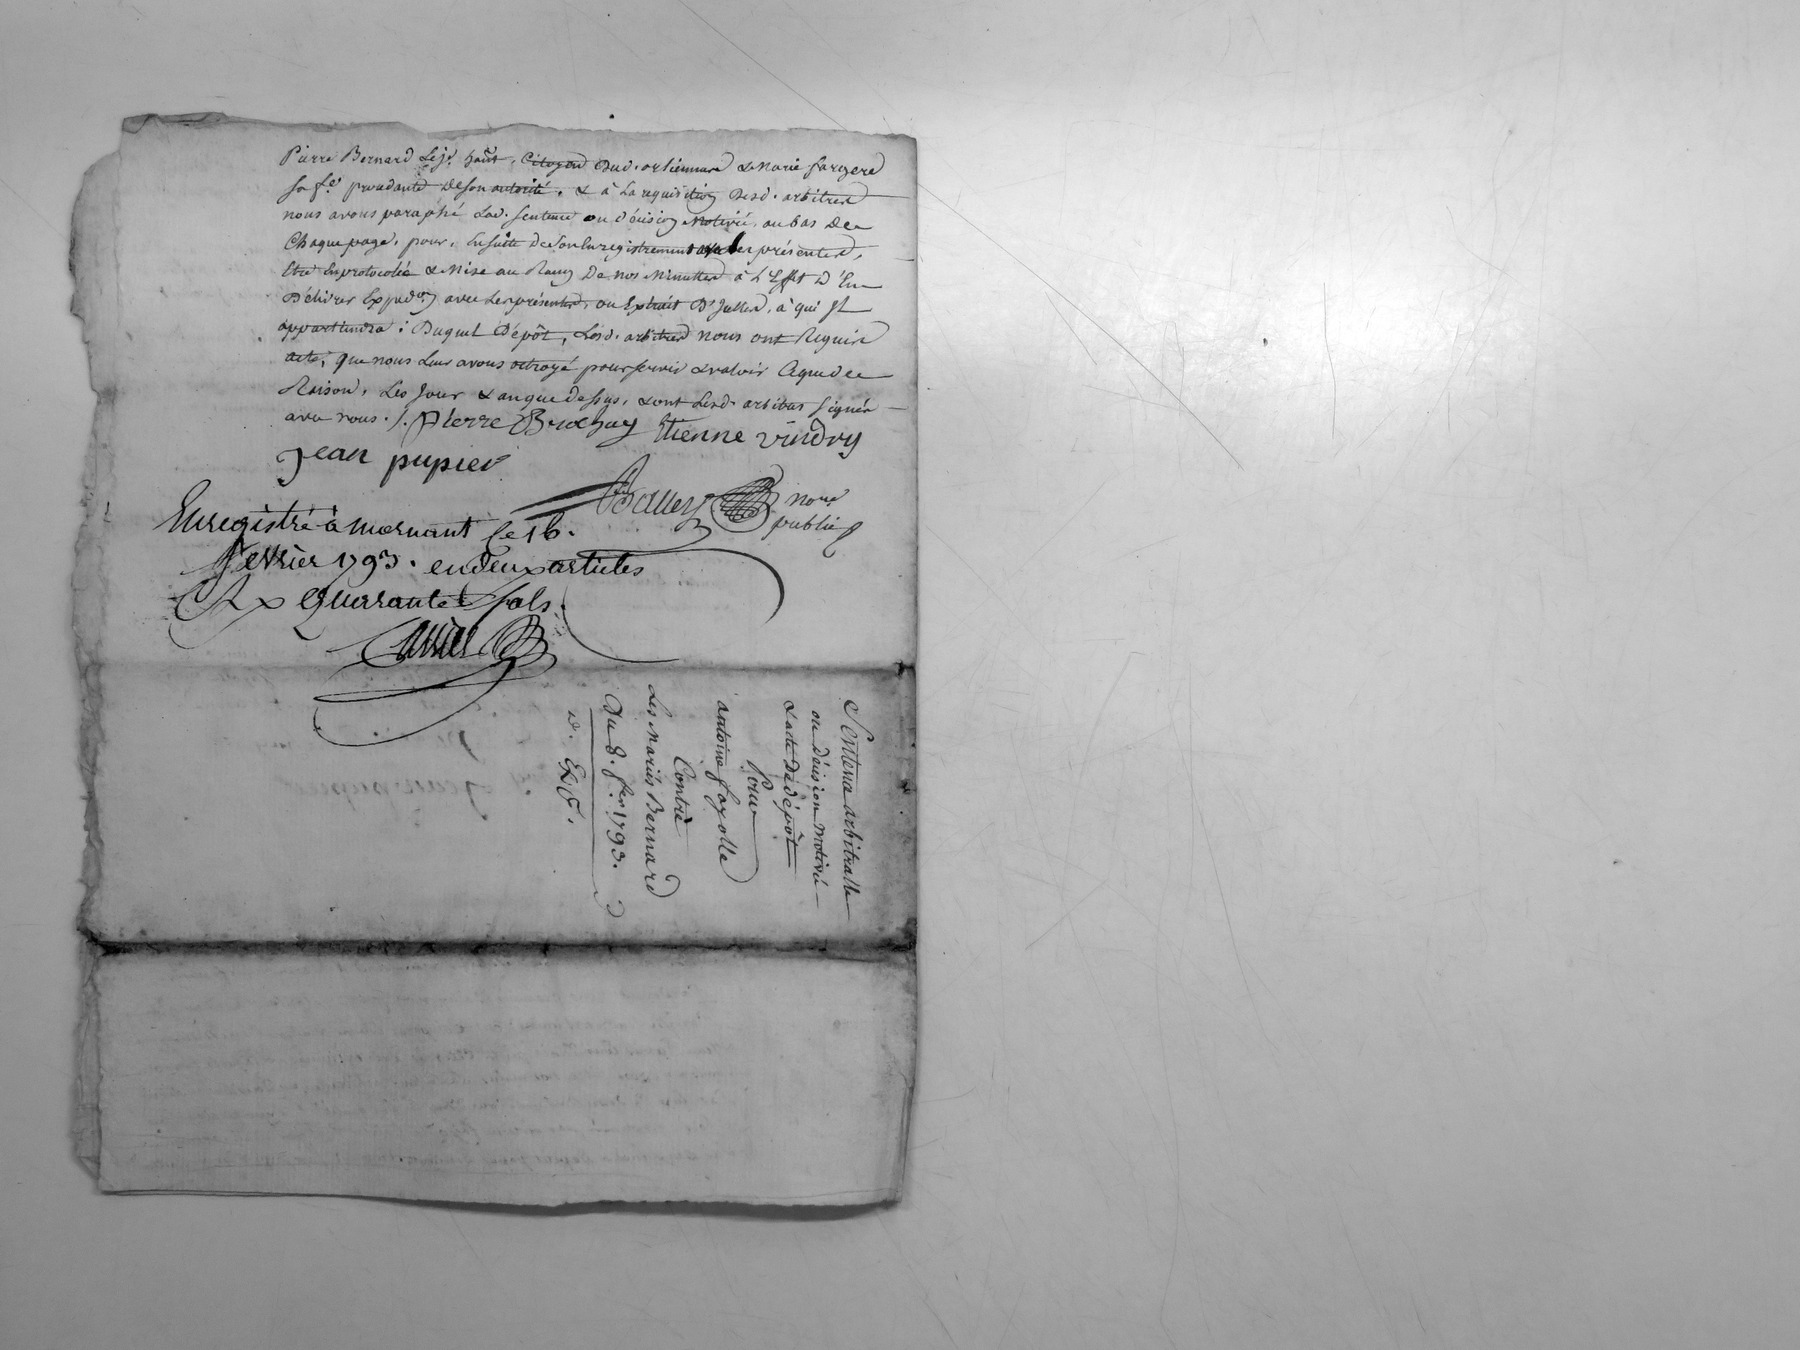 Pierre Bernard Le jе. haut, Citoyen Dud. orliennas & Marie fargere
sa fe. procedante de son autorité, & à La requisition Desd. arbitres
nous avons paraphé Lad. Sentence ou décision Motivée, au bas De
Chaque page, pour, Ensuite de son Enregistrement avec les présentes,
Etre Enprotocolée & Mise au Rang De nos Minuttes à L'Effet D'En
Délivrer Expedon avec Les présentes, ou Extrait D'Jcelles, à qui Jl
appartiendra : Duquel Dépôt, Lesd. arbitres nous ont Requis
acte, que nous Leur avons octroyé pour servir & valoir Ce que de
Raison, Les Jour & an que dessus, & ont Lesd. arbitres signés
avec nous ./. Pierre Brochay Etienne vindry
Jean pupier
nore
public
Enregistré à mornant le 16.
fevrier 1793. en deux articles
Rx quarante sols.
Sentence arbitralle
ou décision Motivée
& acte de dépôt
Pour
antoine fayolle
Contre
Les Mariés Bernard
Du 8. fer. 1793.